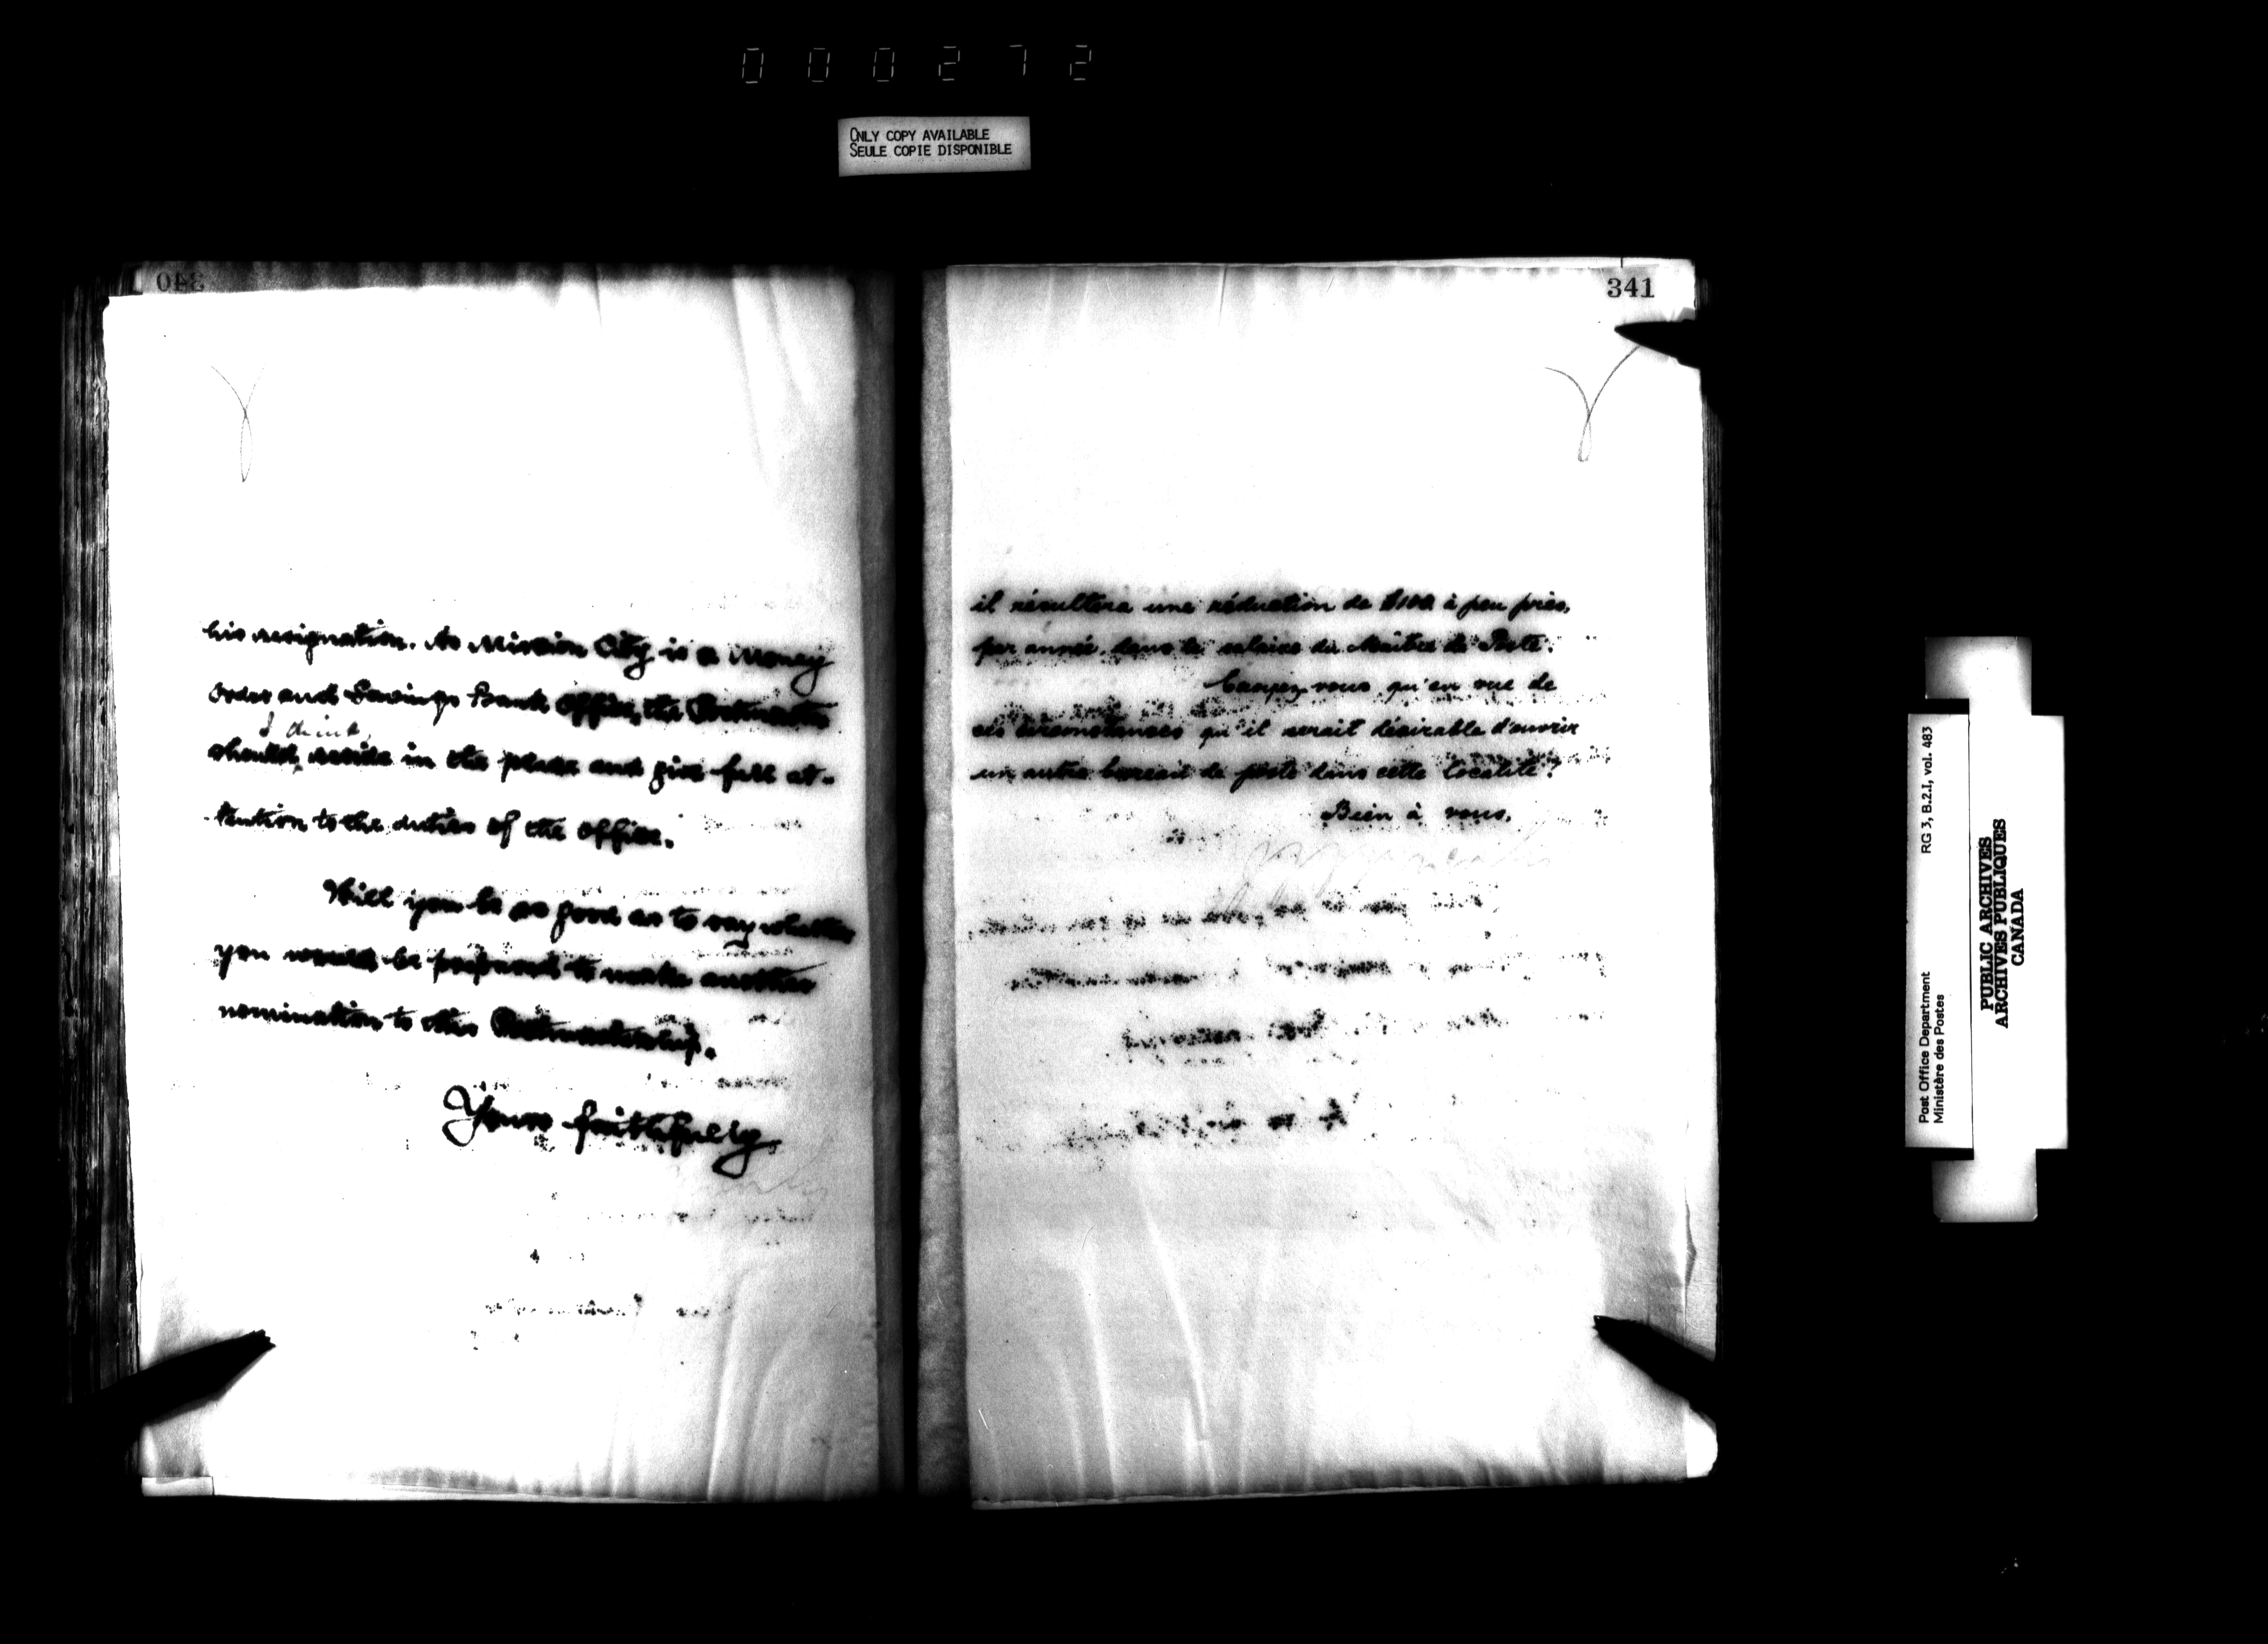 000272
ONLY COPY AVAILABLE
SEULE COPIE DISPONIBLE
340
his resignation. As Mission City is a Money
order and Savings Bank Office, the Postmaster
I think,
should, reside in the place and give full at-
tention to the duties of the office.
Will you be so good as to say whether
you would be prepared to make another
nomination to this Postmastership.
Yours faithfully
341
il résultera une réduction de $100 à peu près,
par année, dans le salaire du Maître de Poste.
vous qu'en vue de
ces circonstances qu'il serait désirable d'ouvrir
un autre bureau de poste dans cette localité?
Bien à vous,
Post Office Department
Ministère des Postes
RG 3, B.2.I, vol. 483
PUBLIC ARCHIVES
ARCHIVES PUBLIQUES
CANADA